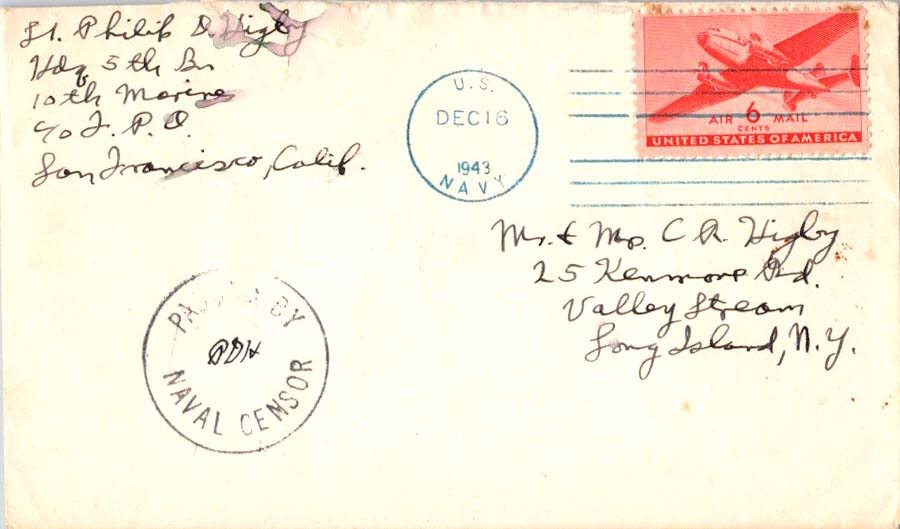 Lt. Philip D. Higby
Hdq 5th Bn
10th Marines
c/o F.P.O.
San Francisco, Calif.
U.S.
DEC 16
1943
NAVY
AIR 6 MAIL
CENTS
UNITED STATES OF AMERICA
Mr. & Mrs. C. R. Higby
25 Kenmore Rd.
Valley Stream
Long Island, N.Y.
BY
PDH
NAVAL CENSOR